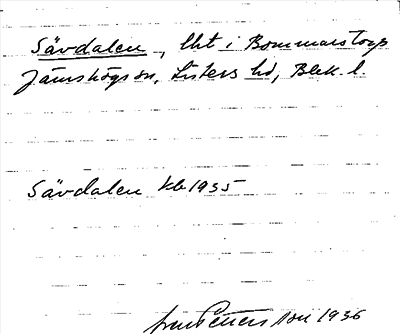 Sävdalen, lht i Bommarstorp
Jämshögs sn, Listers hd, Blek. l.
Sävdalen kb 1935
Pettersson 1936